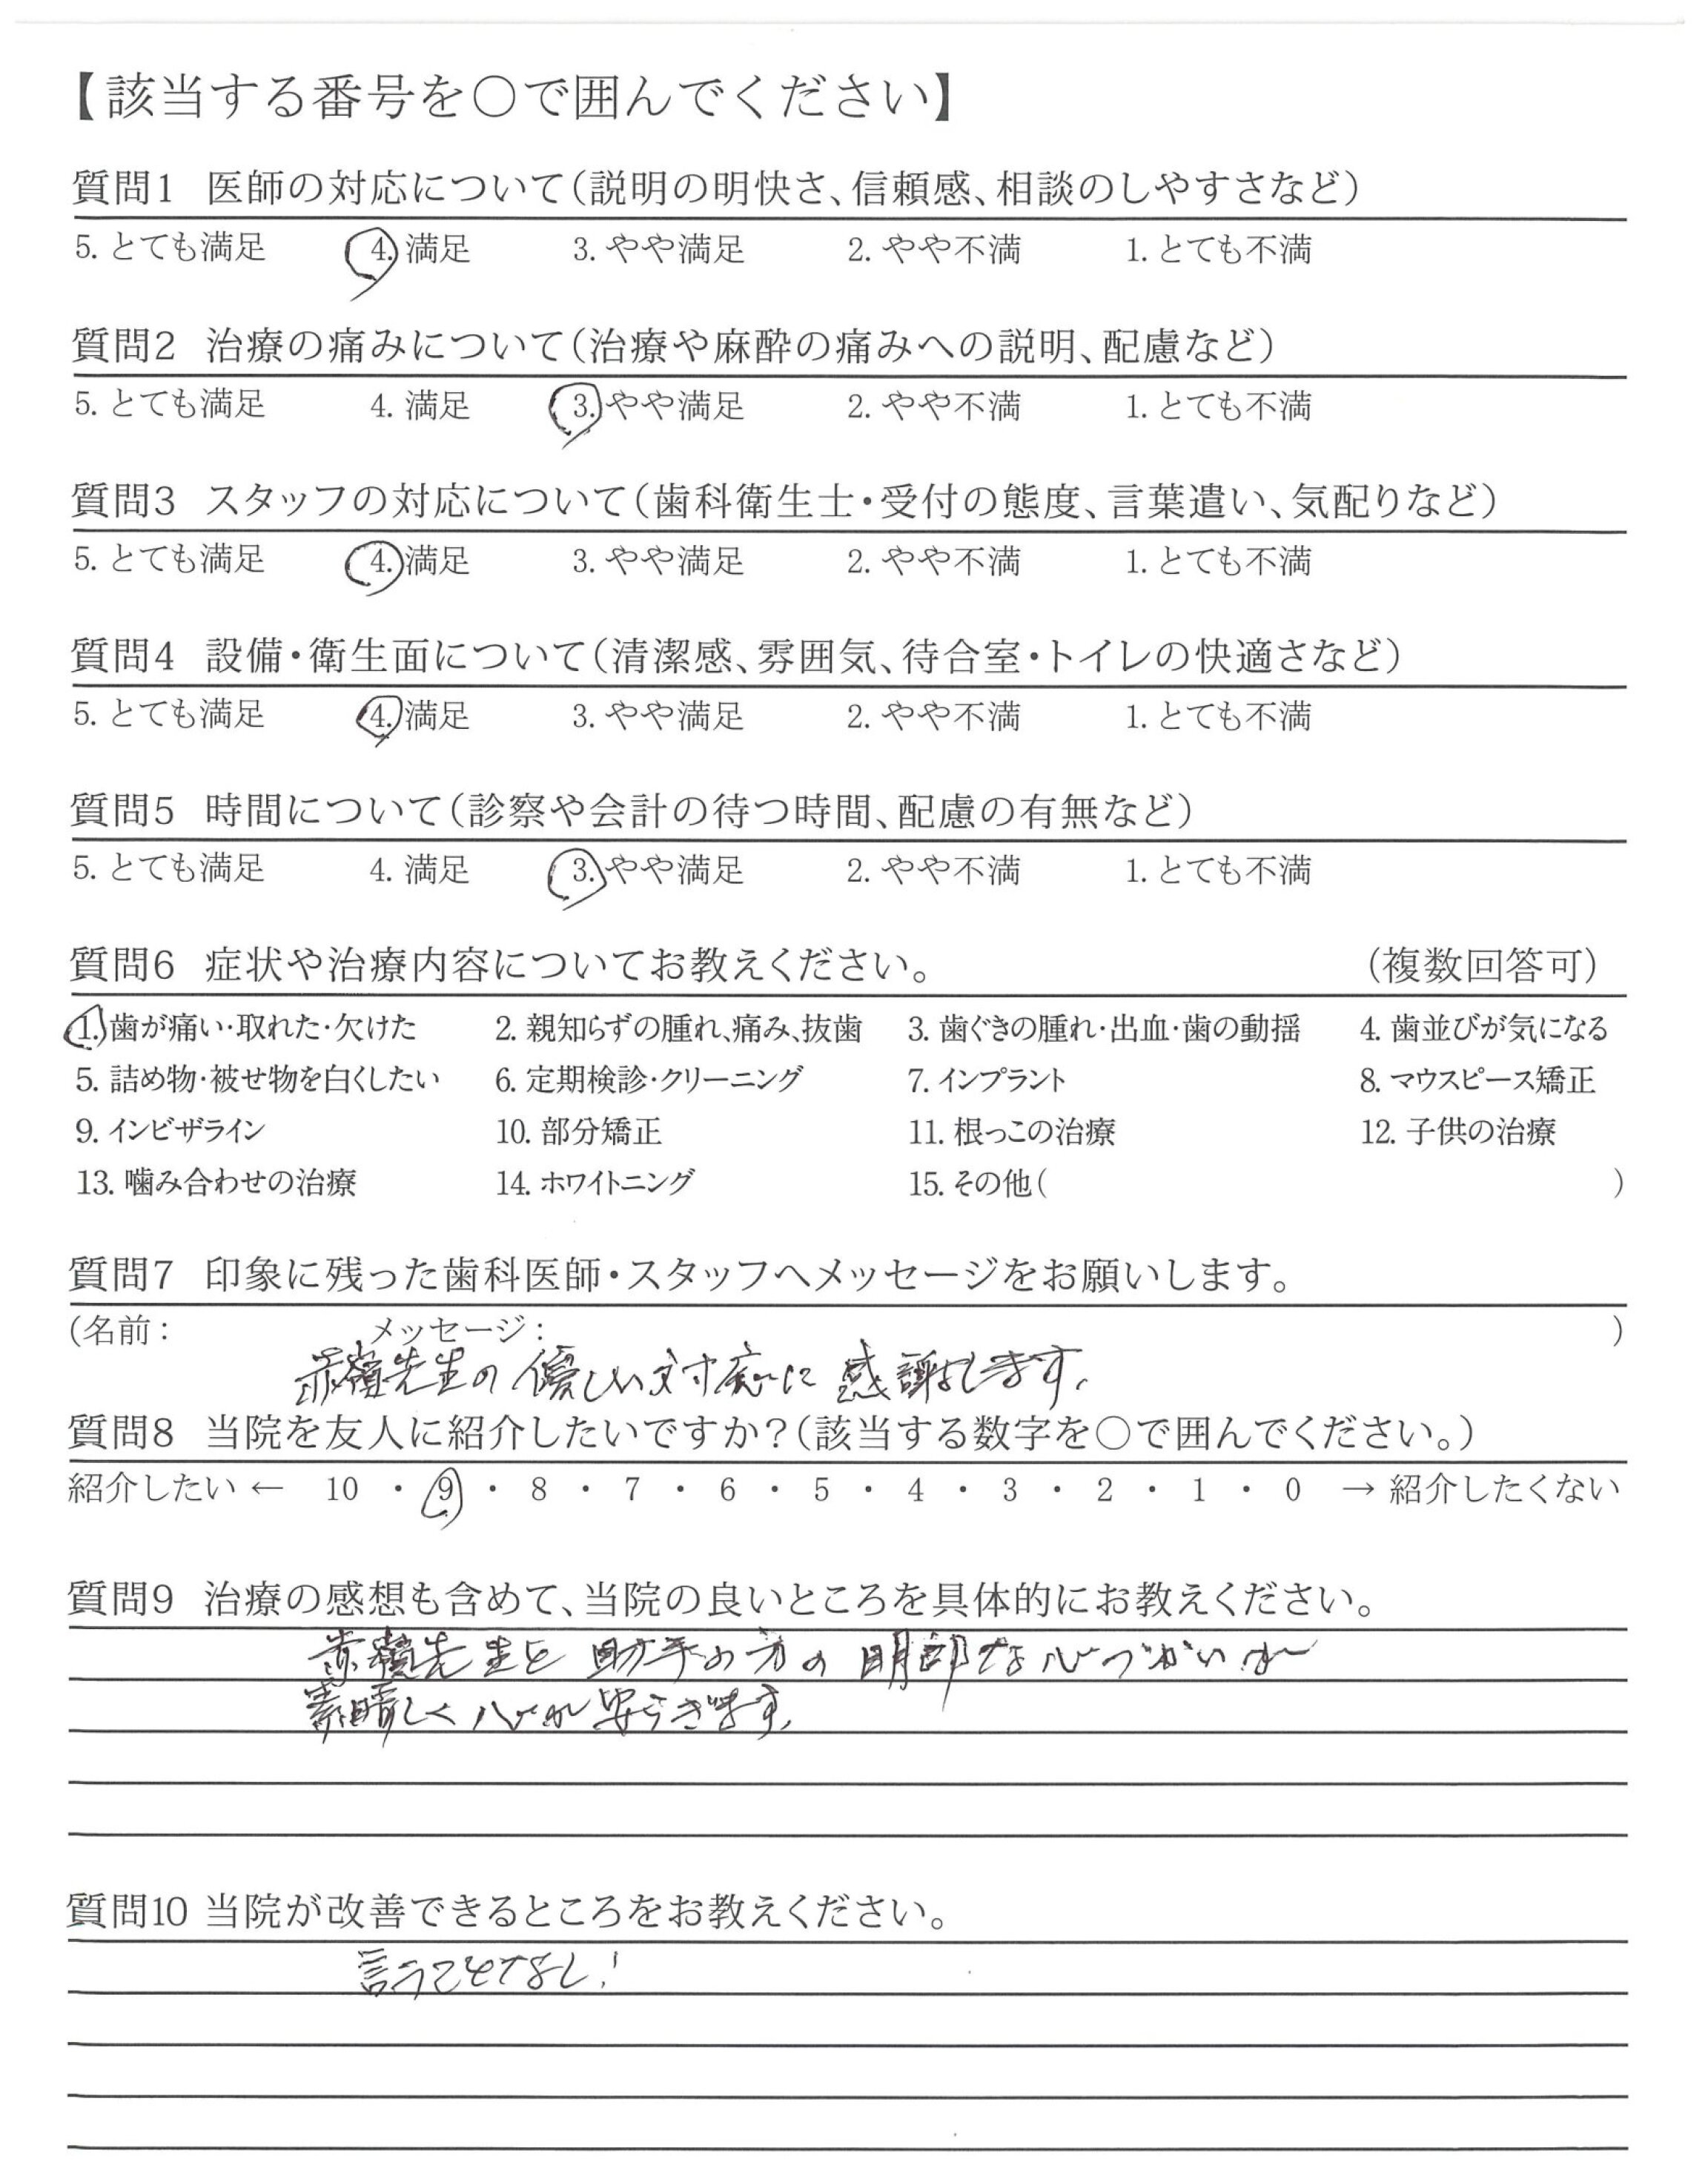 【該当する番号を○で囲んでください】
質問1 医師の対応について(説明の明快さ、信頼感、相談のしやすさなど)
5. とても満足 4. 満足 3. やや満足 2. やや不満 1. とても不満
質問2 治療の痛みについて(治療や麻酔の痛みへの説明、配慮など)
5. とても満足 4. 満足 3. やや満足 2. やや不満 1. とても不満
質問3 スタッフの対応について(歯科衛生士・受付の態度、言葉遣い、気配りなど)
5. とても満足 4. 満足 3. やや満足 2. やや不満 1. とても不満
質問4 設備・衛生面について(清潔感、雰囲気、待合室・トイレの快適さなど)
5. とても満足 4. 満足 3. やや満足 2. やや不満 1. とても不満
質問5 時間について(診察や会計の待つ時間、配慮の有無など)
5. とても満足 4. 満足 3. やや満足 2. やや不満 1. とても不満
質問6 症状や治療内容についてお教えください。 (複数回答可)
1. 歯が痛い・取れた・欠けた 2. 親知らずの腫れ、痛み、抜歯 3. 歯ぐきの腫れ・出血・歯の動揺 4. 歯並びが気になる
5. 詰め物・被せ物を白くしたい 6. 定期検診・クリーニング 7. インプラント 8. マウスピース矯正
9. インビザライン 10. 部分矯正 11. 根っこの治療 12. 子供の治療
13. 噛み合わせの治療 14. ホワイトニング 15. その他( )
質問7 印象に残った歯科医師・スタッフへメッセージをお願いします。
(名前: メッセージ: )
赤嶺先生の優しい対応に感謝します。
質問8 当院を友人に紹介したいですか?(該当する数字を○で囲んでください。)
紹介したい ← 10 ・ 9 ・ 8 ・ 7 ・ 6 ・ 5 ・ 4 ・ 3 ・ 2 ・ 1 ・ 0 → 紹介したくない
質問9 治療の感想も含めて、当院の良いところを具体的にお教えください。
赤嶺先生と助手の方の明郎な心づかいが
素晴しく心が安らぎます。
質問10 当院が改善できるところをお教えください。
言うことなし!